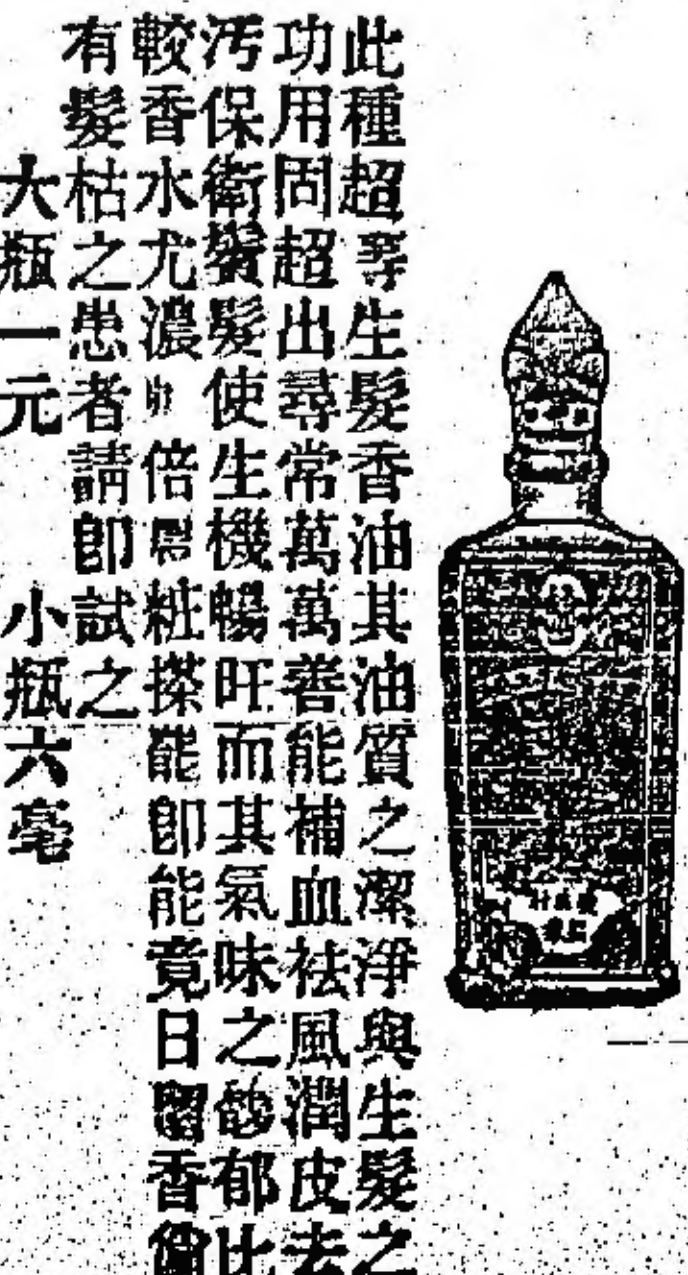 此種超等生髮香油其油質之潔淨與生髮之
功用固超出尋常萬萬善能補血祛風潤皮去
汚保衛鬢髮使生機暢旺而其氣味之馥郁比
較香水尤濃 倍 粧搽罷即能竟日留香倘
有髮枯之患者請即試之
大瓶一元 小瓶六毫